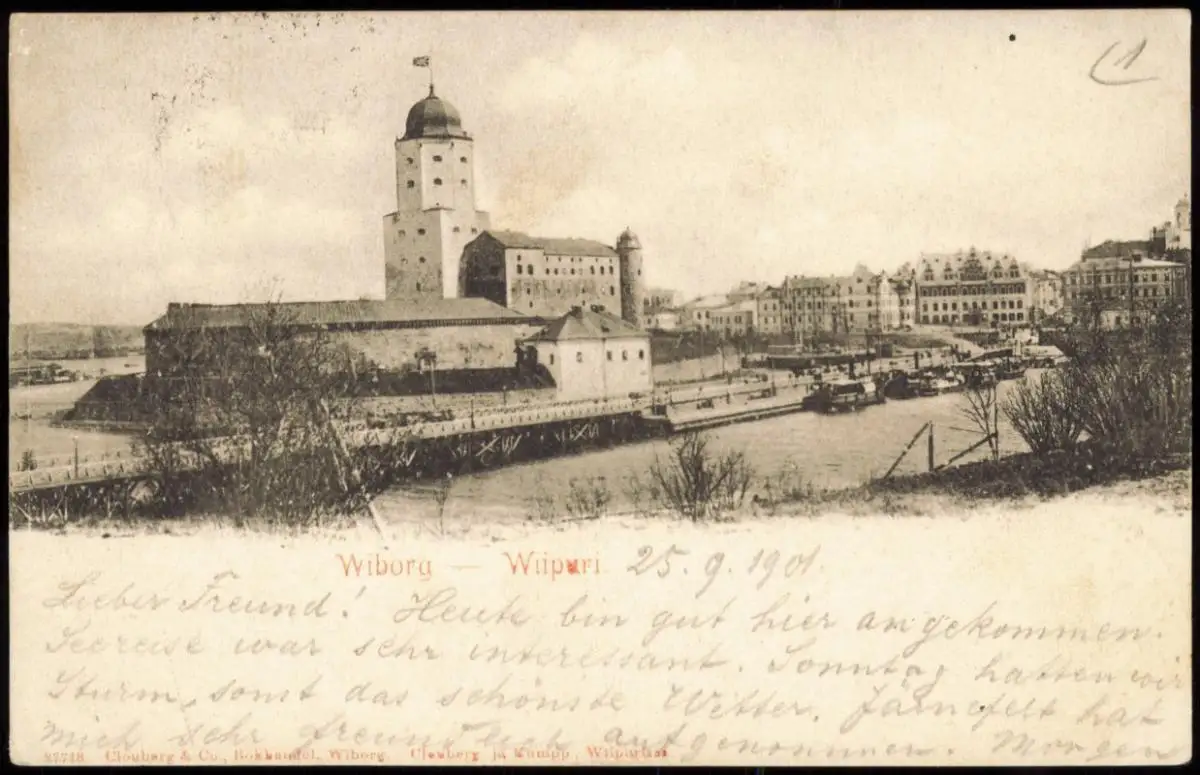 1
Wiborg — Wiipuri 25. 9. 1901
Lieber Freund! Heute bin gut hier angekommen.
Seereise war sehr interessant. Sonntag hatten wir
Sturm, sonst das schönste Wetter. Järnefelt hat
mich sehr freundlich aufgenommen. Morgen
Clouberg & Co., Bokhandel, Wiborg. Clouberg ja Kumpp., Wiipurissa